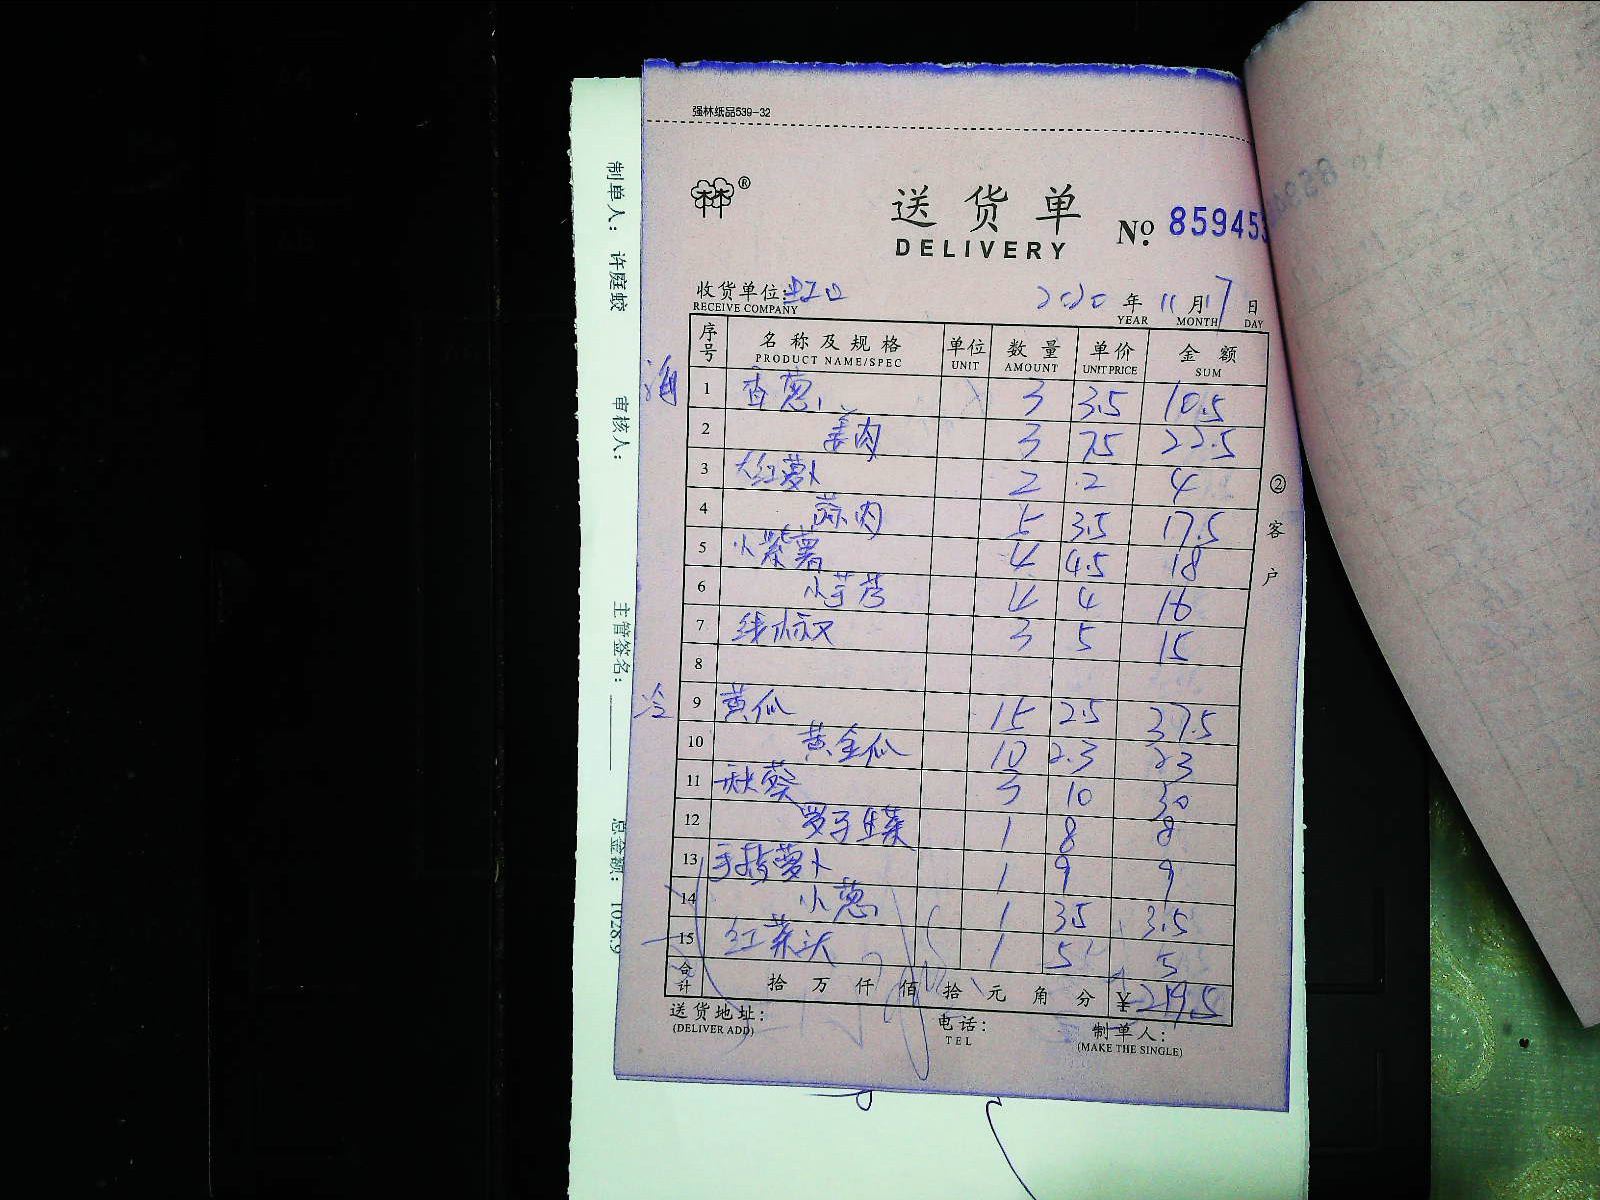 强林纸品539-32
林 ®
送货单
DELIVERY
No. 859453
收货单位: 虹口
RECEIVE COMPANY
2020 年 11 月 17 日
YEAR MONTH DAY
序号 名称及规格 单位 数量 单价 金额
PRODUCT NAME/SPEC UNIT AMOUNT UNIT PRICE SUM
海
1 香葱 3 3.5 10.5
2 姜肉 3 7.5 22.5
3 大红萝卜 2 2 4
4 蒜肉 5 3.5 17.5
5 小紫薯 4 4.5 18
6 小芋艿 4 4 16
7 线椒 3 5 15
8
冷
9 黄瓜 15 2.5 37.5
10 黄金瓜 10 2.3 23
11 秋葵 3 10 30
12 罗马生菜 1 8 8
13 手指萝卜 1 9 9
14 小葱 1 3.5 3.5
15 红菜头 1 5 5
合计 拾 万 仟 佰 拾 元 角 分 ¥ 219.5
送货地址:
(DELIVER ADD)
电话:
TEL
制单人:
(MAKE THE SINGLE)
②客户
制单人: 许庭蛟
审核人:
主管签名:
总金额: 1028.9